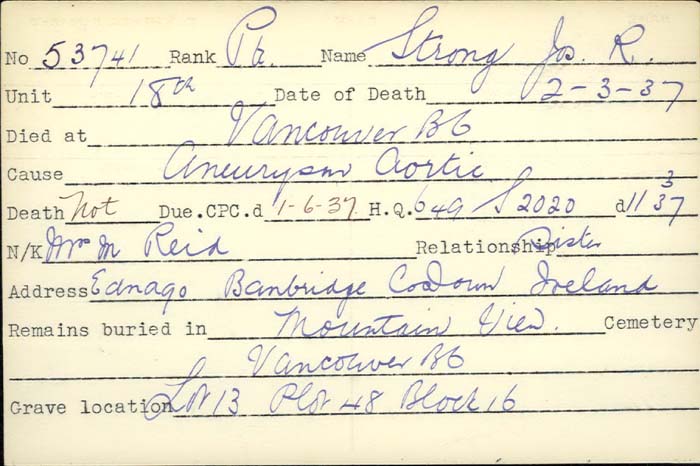 No 53741 Rank Pte. Name Strong Jos. R.
Unit 18th Date of Death 2-3-37
Died at Vancouver BC
Cause Aneurysm Aortic
Death Not Due.CPC.d 1-6-37 H.Q. 649 S 2020 d 11 3 37
N/K Mrs M Reid Relationship Sister
Address Ednago Banbridge Co Down Ireland
Remains buried in Mountain View. Cemetery
Vancouver BC
Grave location Lot 13 Plot 48 Block 16